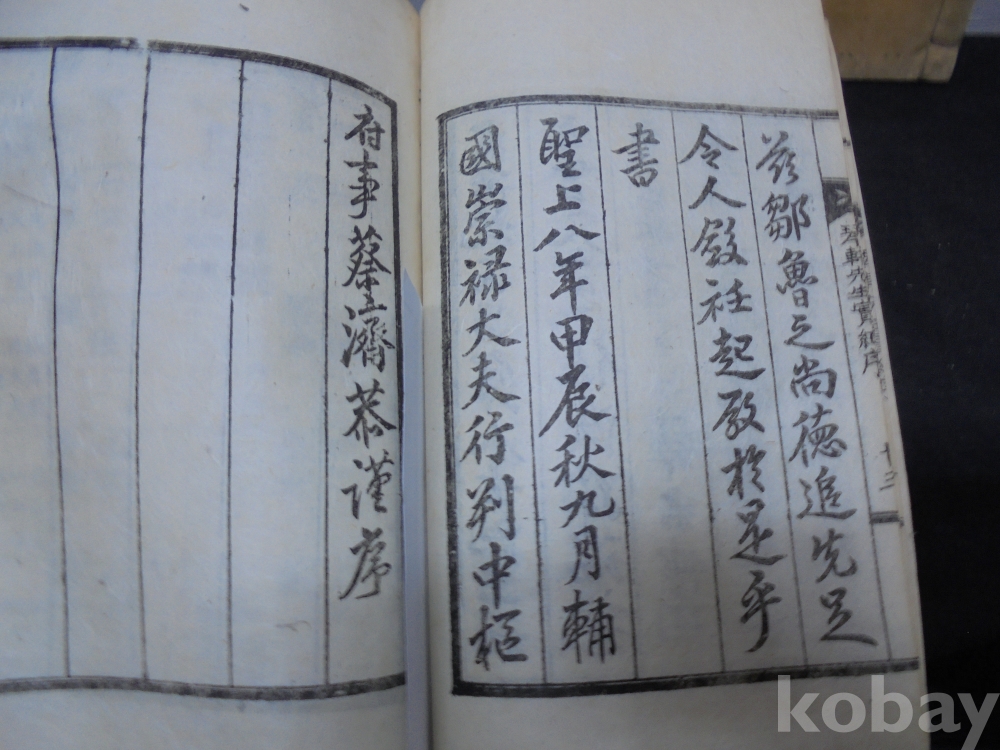 先生實紀序
十三
茲鄒魯之尚德追先足
令人斂衽起敬於是乎
書
聖上八年甲辰秋九月輔
國崇禄大夫行判中樞
府事蔡濟恭謹序
kobay